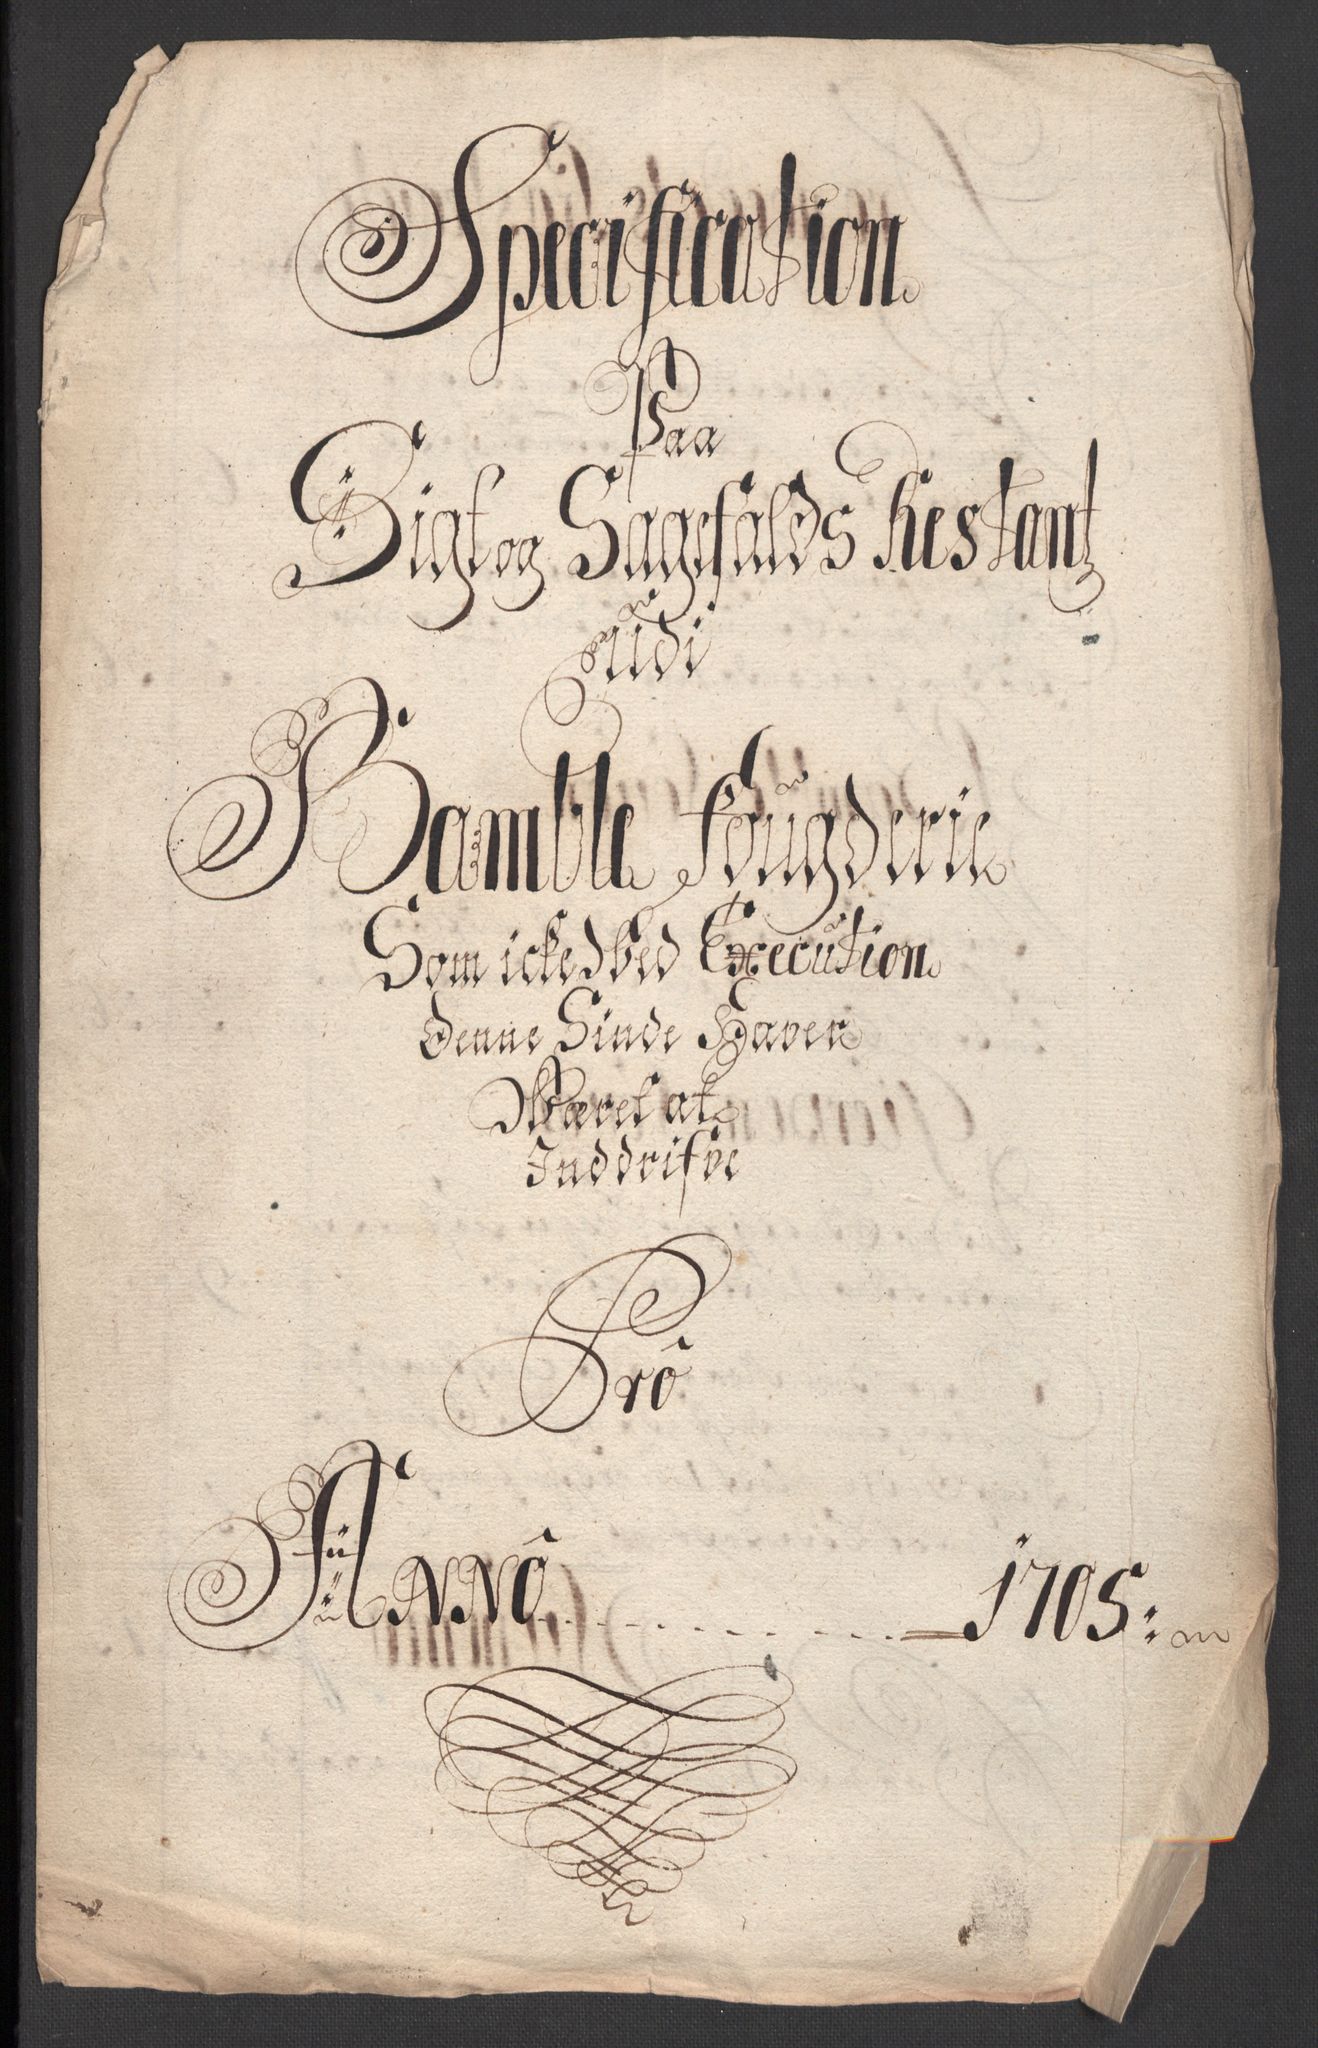 Specification
Paa
Sigt og Sagefalds Restantz
udi
Bamble Fougderie
Som icke ved Execution
denne Sinde Haver
Wæret at
Inddrifve
Pro
Anno 1705: